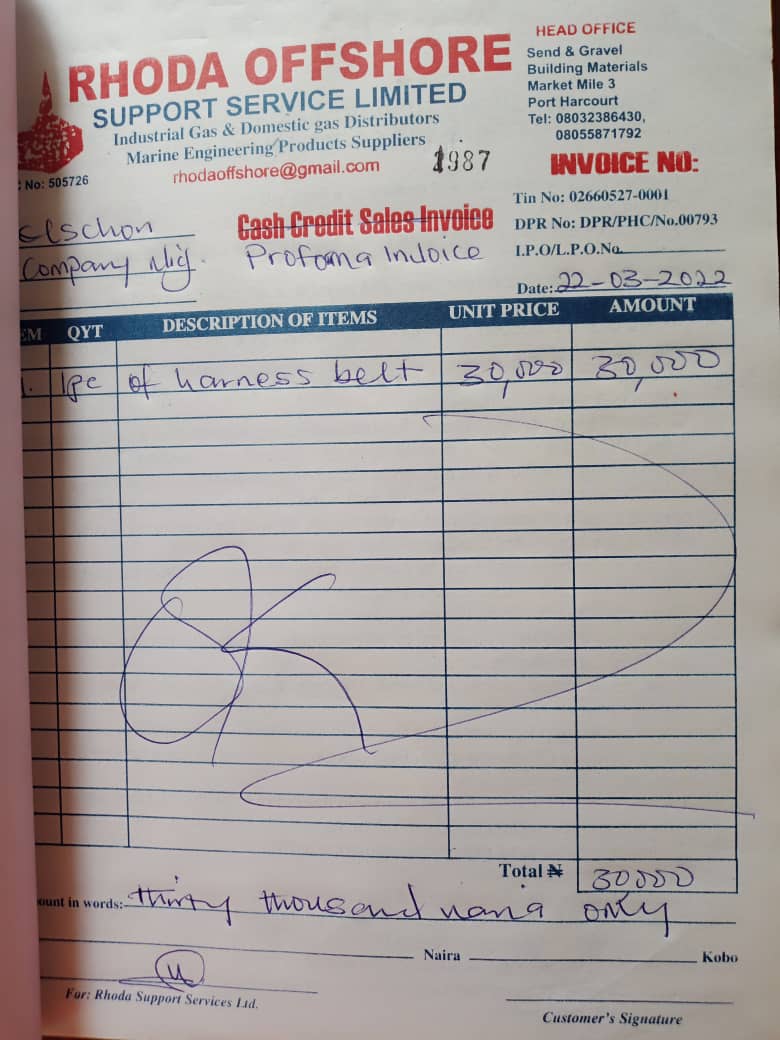 RHODA OFFSHORE
SUPPORT SERVICE LIMITED
Industrial Gas & Domestic gas Distributors
Marine Engineering Products Suppliers
rhodaoffshore@gmail.com
No: 505726
HEAD OFFICE
Send & Gravel
Building Materials
Market Mile 3
Port Harcourt
Tel: 08032386430,
08055871792
1987
INVOICE NO:
Tin No: 02660527-0001
DPR No: DPR/PHC/No.00793
I.P.O/L.P.O.No.
Date: 22-03-2022
elschon
Company Nig.
Cash Credit Sales Invoice
Profoma Invoice
EM QYT DESCRIPTION OF ITEMS UNIT PRICE AMOUNT
1. 1pc of harness belt 30,000 30,000
Total ₦ 30,000
ount in words: thirty thousand naira only
Naira Kobo
For: Rhoda Support Services Ltd.
Customer's Signature